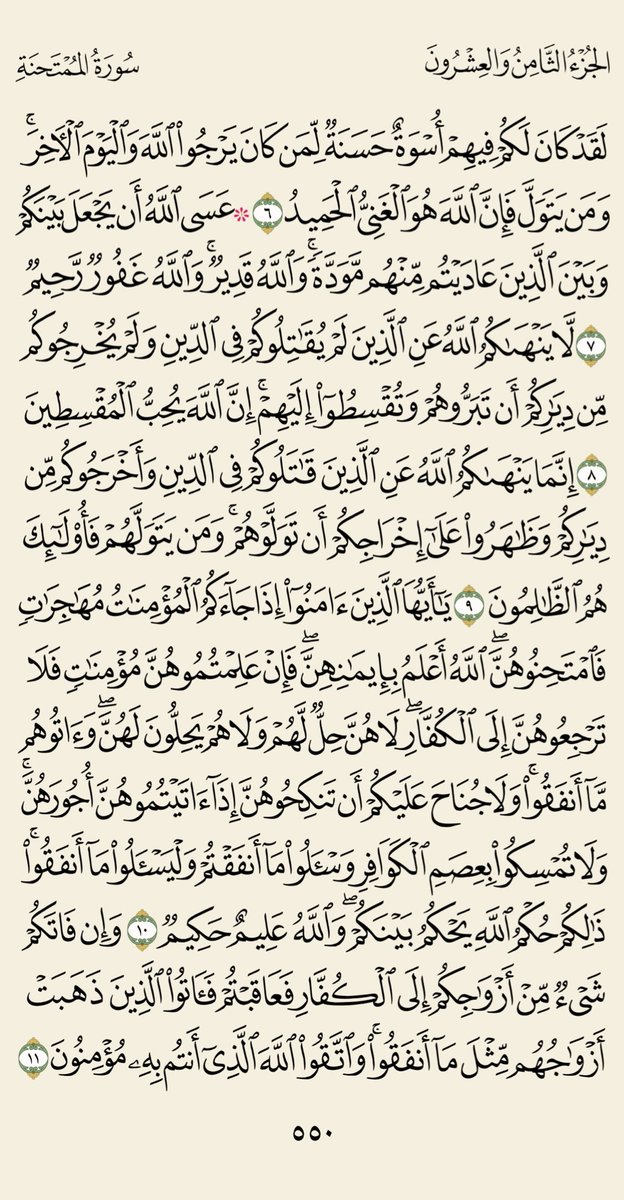 الجُزْءُ الثَّامِنُ وَالعِشْرُونَ سُورَةُ المُمْتَحنَةِ
لَقَدْ كَانَ لَكُمْ فِيهِمْ أُسْوَةٌ حَسَنَةٌ لِّمَن كَانَ يَرْجُوا۟ ٱللَّهَ وَٱلْيَوْمَ ٱلْأَخِرَۚ
وَمَن يَتَوَلَّ فَإِنَّ ٱللَّهَ هُوَ ٱلْغَنِىُّ ٱلْحَمِيدُ ٦ * عَسَى ٱللَّهُ أَن يَجْعَلَ بَيْنَكُمْ
وَبَيْنَ ٱلَّذِينَ عَادَيْتُم مِّنْهُم مَّوَدَّةًۚ وَٱللَّهُ قَدِيرٌۚ وَٱللَّهُ غَفُورٌ رَّحِيمٌ
٧ لَّا يَنْهَىٰكُمُ ٱللَّهُ عَنِ ٱلَّذِينَ لَمْ يُقَٰتِلُوكُمْ فِى ٱلدِّينِ وَلَمْ يُخْرِجُوكُم
مِّن دِيَٰرِكُمْ أَن تَبَرُّوهُمْ وَتُقْسِطُوٓا۟ إِلَيْهِمْۚ إِنَّ ٱللَّهَ يُحِبُّ ٱلْمُقْسِطِينَ
٨ إِنَّمَا يَنْهَىٰكُمُ ٱللَّهُ عَنِ ٱلَّذِينَ قَٰتَلُوكُمْ فِى ٱلدِّينِ وَأَخْرَجُوكُم مِّن
دِيَٰرِكُمْ وَظَٰهَرُوا۟ عَلَىٰٓ إِخْرَاجِكُمْ أَن تَوَلَّوْهُمْۚ وَمَن يَتَوَلَّهُمْ فَأُو۟لَٰٓئِكَ
هُمُ ٱلظَّٰلِمُونَ ٩ يَٰٓأَيُّهَا ٱلَّذِينَ ءَامَنُوٓا۟ إِذَا جَآءَكُمُ ٱلْمُؤْمِنَٰتُ مُهَٰجِرَٰتٍ
فَٱمْتَحِنُوهُنَّۖ ٱللَّهُ أَعْلَمُ بِإِيمَٰنِهِنَّۖ فَإِنْ عَلِمْتُمُوهُنَّ مُؤْمِنَٰتٍ فَلَا
تَرْجِعُوهُنَّ إِلَى ٱلْكُفَّارِۖ لَا هُنَّ حِلٌّ لَّهُمْ وَلَا هُمْ يَحِلُّونَ لَهُنَّۖ وَءَاتُوهُم
مَّآ أَنفَقُوا۟ۚ وَلَا جُنَاحَ عَلَيْكُمْ أَن تَنكِحُوهُنَّ إِذَآ ءَاتَيْتُمُوهُنَّ أُجُورَهُنَّۚ
وَلَا تُمْسِكُوا۟ بِعِصَمِ ٱلْكَوَافِرِ وَسْـَٔلُوا۟ مَآ أَنفَقْتُمْ وَلْيَسْـَٔلُوا۟ مَآ أَنفَقُوا۟ۚ
ذَٰلِكُمْ حُكْمُ ٱللَّهِ يَحْكُمُ بَيْنَكُمْۖ وَٱللَّهُ عَلِيمٌ حَكِيمٌ ١٠ وَإِن فَاتَكُمْ
شَىْءٌ مِّنْ أَزْوَٰجِكُمْ إِلَى ٱلْكُفَّارِ فَعَاقَبْتُمْ فَـَٔاتُوا۟ ٱلَّذِينَ ذَهَبَتْ
أَزْوَٰجُهُم مِّثْلَ مَآ أَنفَقُوا۟ۚ وَٱتَّقُوا۟ ٱللَّهَ ٱلَّذِىٓ أَنتُم بِهِۦ مُؤْمِنُونَ ١١
٥٥٠